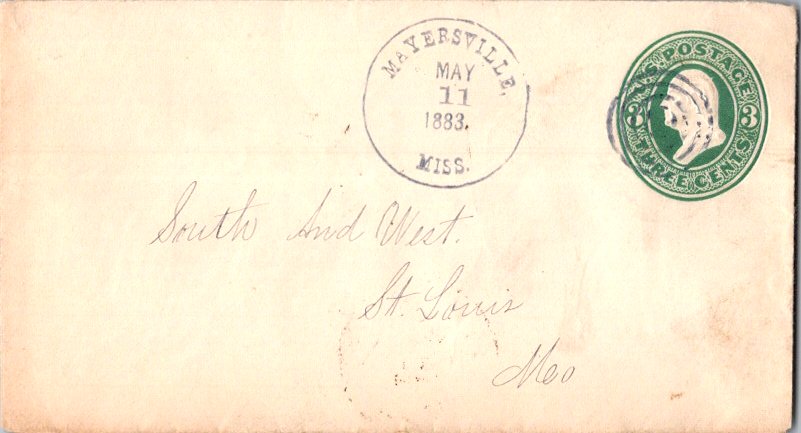 MAYERSVILLE,
MAY
11
1883.
MISS.
U.S. POSTAGE
3 3
THREE CENTS
South And West.
St. Louis
Mo